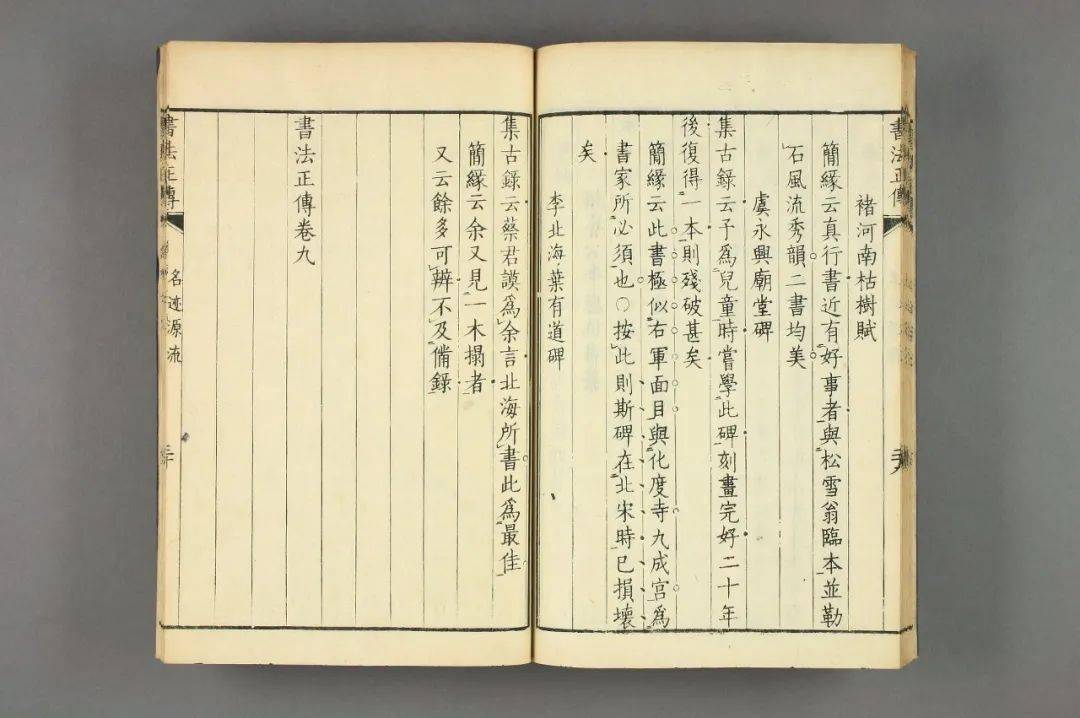 書法正傳
褚河南枯樹賦
簡緣云真行書近有好事者與松雪翁臨本並勒
石風流秀韻二書均美
虞永興廟堂碑
集古錄云予爲兒童時嘗學此碑刻畫完好二十年
後復得一本則殘破甚矣
簡緣云此書極似右軍面目與化度寺九成宮爲
書家所必須也○按此則斯碑在北宋時已損壞
矣
李北海葉有道碑
集古錄云蔡君謨爲余言北海所書此爲最佳
簡緣云余又見一木搨者
又云餘多可辨不及備錄
書法正傳卷九
書法正傳
名迹源流